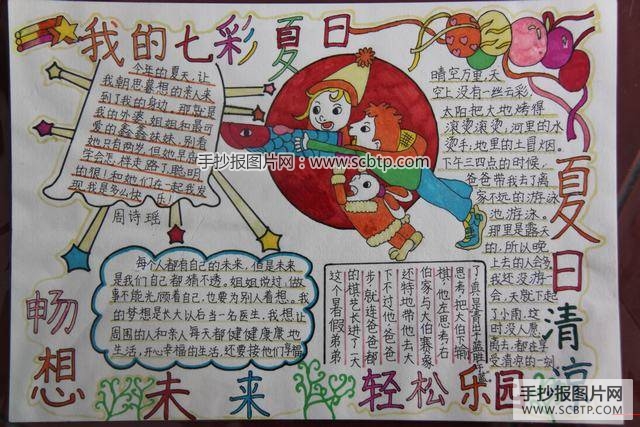 我的七彩夏日
今年的夏天，让
我朝思暮想的亲人来
到了我的身边，那就是
我的外婆、姐姐和最可
爱的鑫鑫妹妹，别看
她只有两岁，但她早已
学会怎样走路了，聪明
的狠！和她们在一起我发
现我是多么快乐！
周诗瑶
手抄报图片网：www.scbtp.com
晴空万里，天
空上没有一丝云彩，
太阳把大地烤得
滚烫滚烫，河里的水
烫手，地里的土冒烟。
下午三四点的时候，
爸爸带我去了离
家不远的游泳
池游泳。
那里是露天
的，所以晚
上去的人会多
我还没游
会，天就下起
了小雨，这
时没人愿
离去，都在享
受清凉的一刻
夏日清凉
每个人都有自己的未来，但是未来
是我们自己都猜不透，姐姐说过，做
事不能光顾看自己，也要为别人着想。我
的梦想是长大以后当一名医生，我想让
周围的人和亲人每天都健健康康地
生活，开心幸福的生活，还要接他们享福
畅想未来
这个暑假弟弟
的棋艺长进了一大
步，就连爸爸都
下不过他，爸爸
还特地带他去大
伯家与大伯赛象
棋，他左思考右
思考，把大伯下输
了，真是青出于蓝胜于蓝
轻松乐园
手抄报图片网
WWW.SCBTP.COM